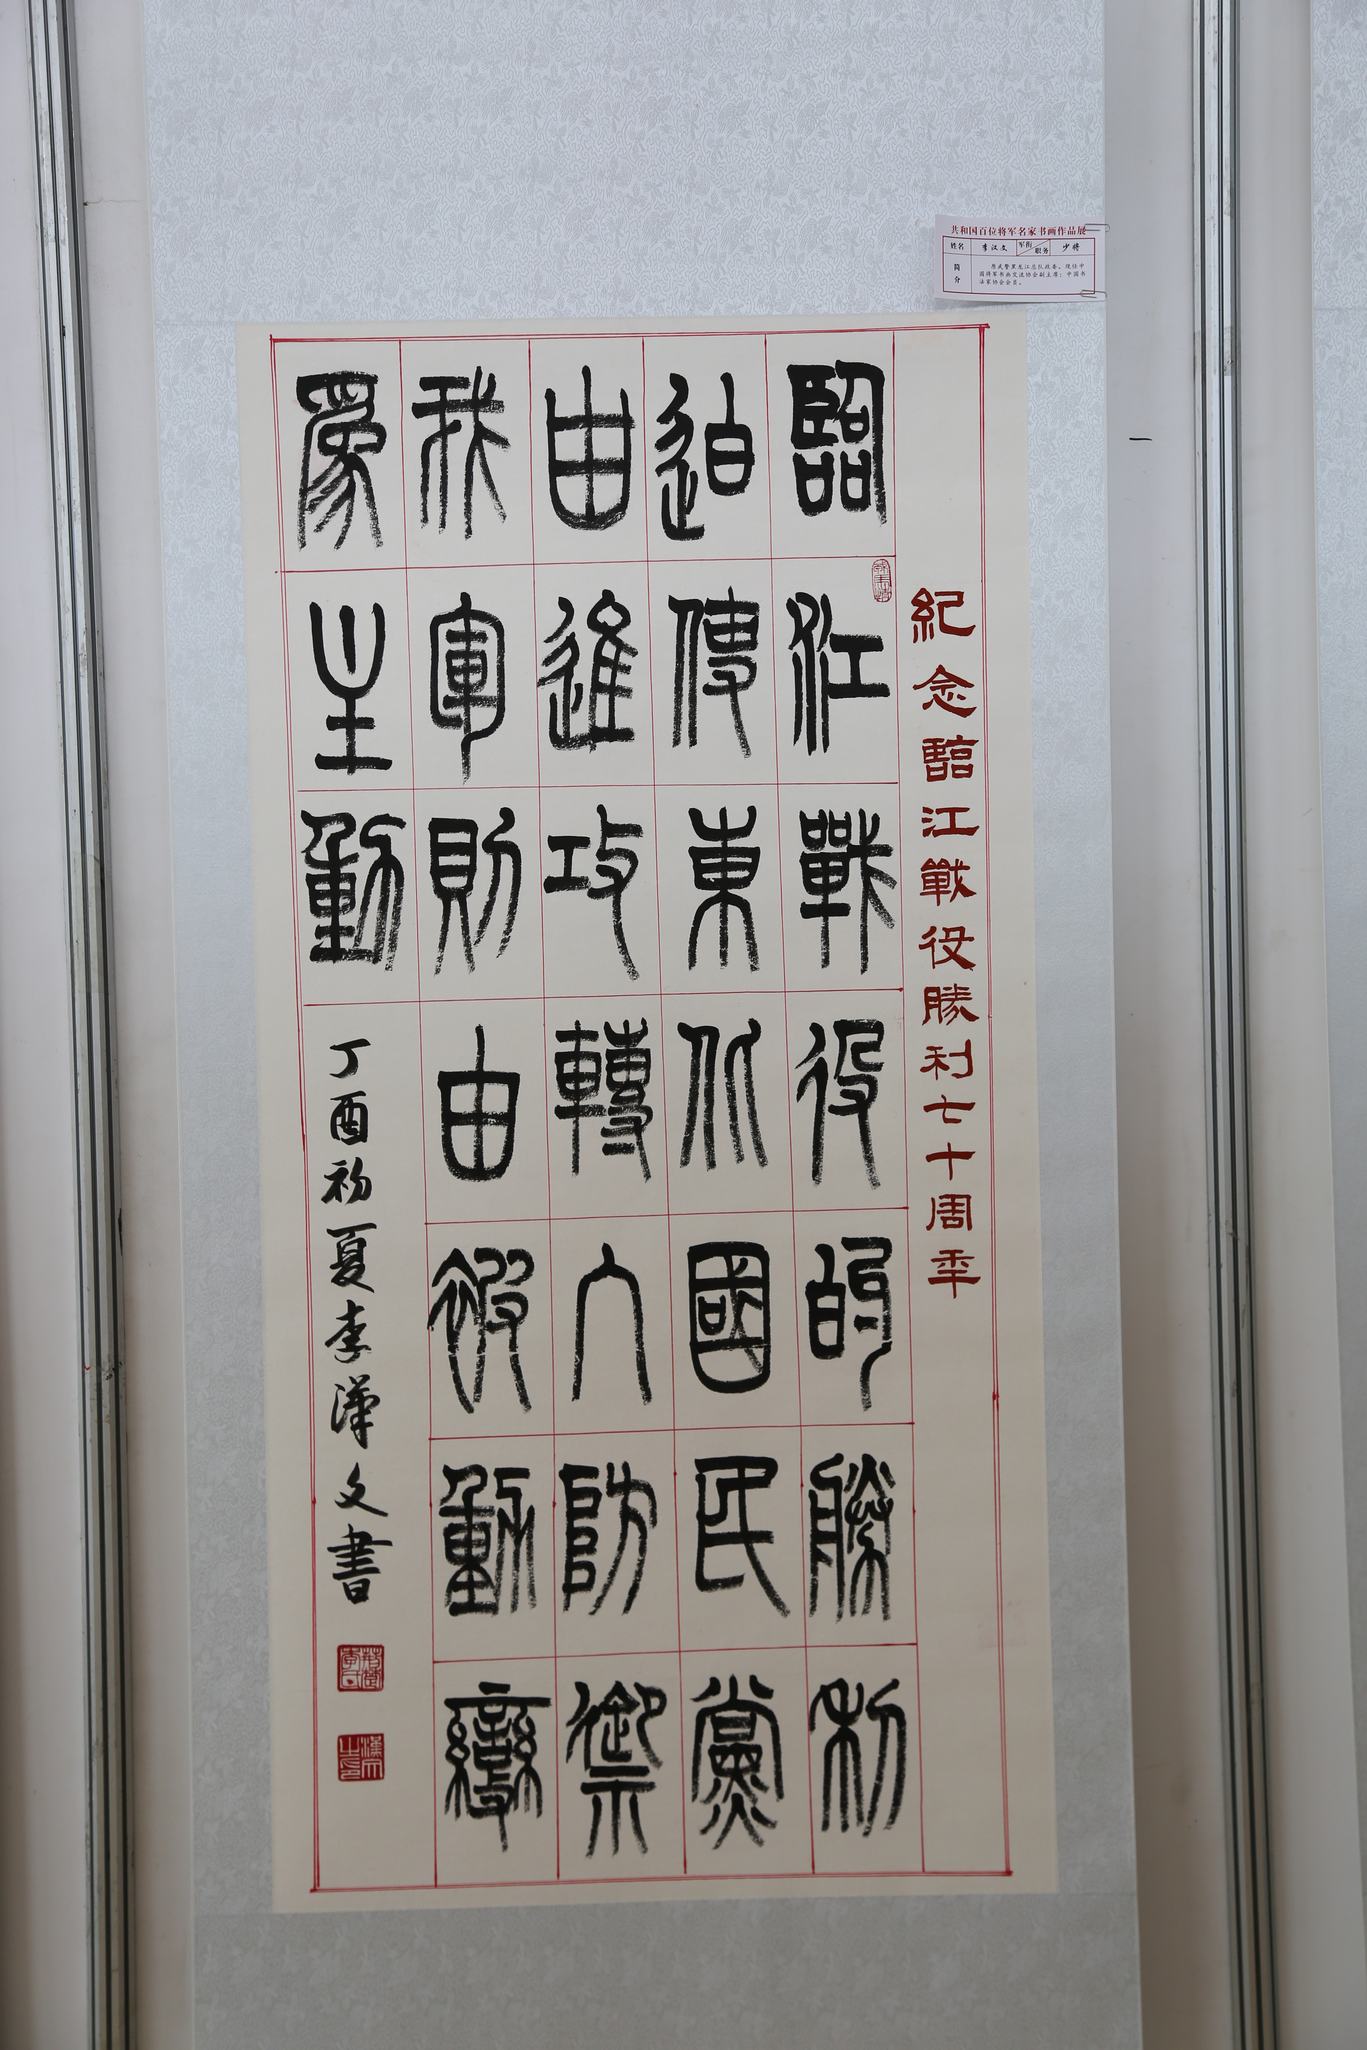 共和国百位将军名家书画作品展
姓名 李汉文 军衔 职务 少将
简介
原武警黑龙江总队政委。现任中
国将军书画交流协会副主席;中国书
法家协会会员。
紀念臨江戰役勝利七十周年
臨江戰役的勝利
迫使東北國民黨
由進攻轉入防禦
我軍則由被動變
為主動
丁酉初夏李漢文書
漢文之印